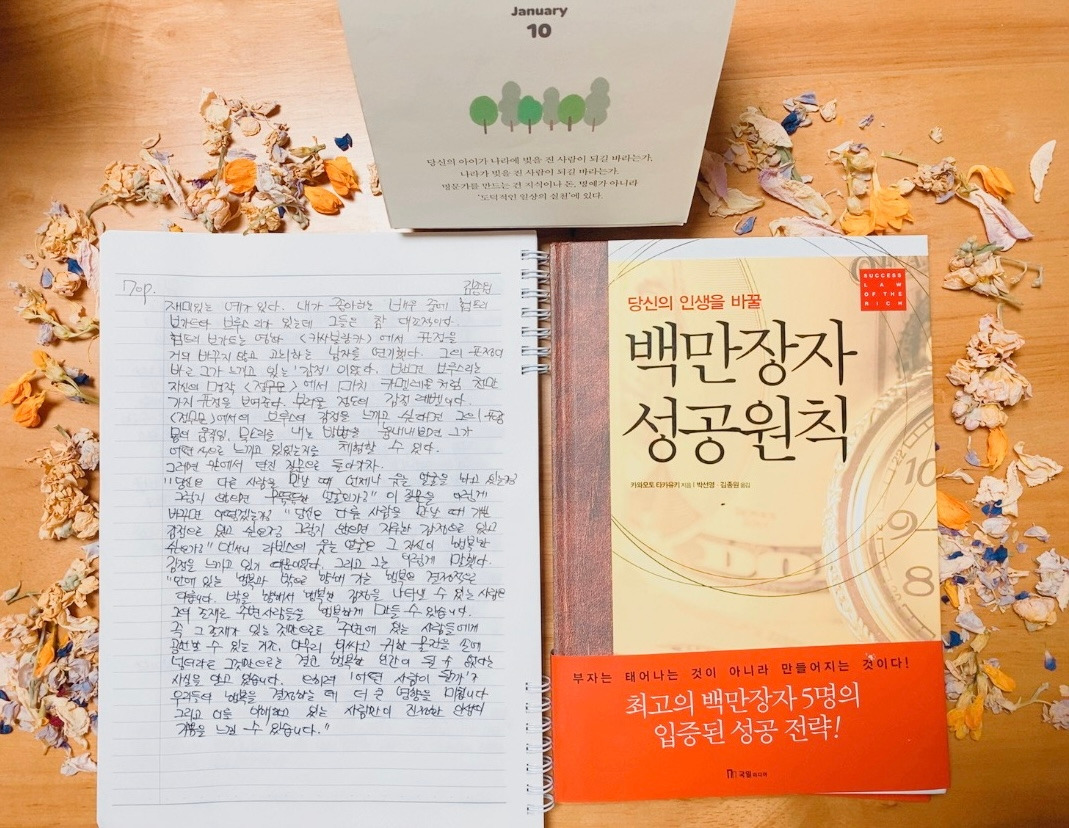 January
10
당신의 아이가 나라에 빛을 진 사람이 되길 바라는가,
나라가 빛을 진 사람이 되길 바라는가,
명문가를 만드는 건 지식이나 돈, 명예가 아니라
'도덕적인 일상의 실천'에 있다.
70p. 김종원
재미있는 예가 있다. 내가 좋아하는 배우 중에 험프리
보가트와 보우스키가 있는데 그들은 참 대조적이다.
험프리 보가트는 영화 <카사블랑카>에서 표정을
거의 바꾸지 않고 고뇌하는 남자를 연기했다. 그의 표정이
바로 그가 느끼고 있는 '감정'이었다.
자신의 명작 에서 마치 카멜레온처럼 천만
가지 표정을 보여준다. 놀라울 정도의 감정
에서의 감정을 느끼고 싶다면 그의 표정
몸의 움직임, 목소리를 내는 방법을 흉내내보면 그가
어떤 식으로 느끼고 있었는지를 체험할 수 있다.
그러면 앞에서 던진 질문으로 돌아가자.
"당신은 다른 사람을 만날 때 언제나 웃는 얼굴을 하고 있는가?
그렇지 않으면 무뚝뚝한 얼굴인가?" 이 질문을 이렇게
바꾸면 어떻겠는가? "당신은 다른 사람을 만날 때 기쁜
감정으로 있고 싶은가? 그렇지 않으면 지루한 감정으로 있고
싶은가?" 앤서니 라빈스의 웃는 얼굴은 그 자신이 행복한
감정을 느끼고 있기 때문이었다. 그리고 그는 이렇게 말했다.
"안에 있는 행복과 밖으로 향해 가는 행복은 결정적으로
다릅니다. 밖을 향해서 행복한 감정을 나타낼 수 있는 사람은
그의 존재로 주변사람들을 행복하게 만들 수 있습니다.
즉 그 존재가 있는 것만으로도 주변에 있는 사람들에게
공헌할 수 있는 거죠. 아무리 비싸고 귀한 물건을 손에
넣더라도 그것만으로는 결코 행복한 인간이 될 수 없다는
사실을 알고 있습니다. 오히려 '어떤 사람이 될까'가
우리들의 행복을 결정하는 데 더 큰 영향을 미칩니다
그리고 이를 이해하고 있는 사람만이 진정한 인생의
기쁨을 느낄 수 있습니다."
SUCCESS
LAW
OF THE
RICH
당신의 인생을 바꿀
백만장자
성공원칙
카와모토 타카유키 지음 | 박선영·김종원 옮김
10
9
8
부자는 태어나는 것이 아니라 만들어지는 것이다!
최고의 백만장자 5명의
입증된 성공 전략!
국일미디어